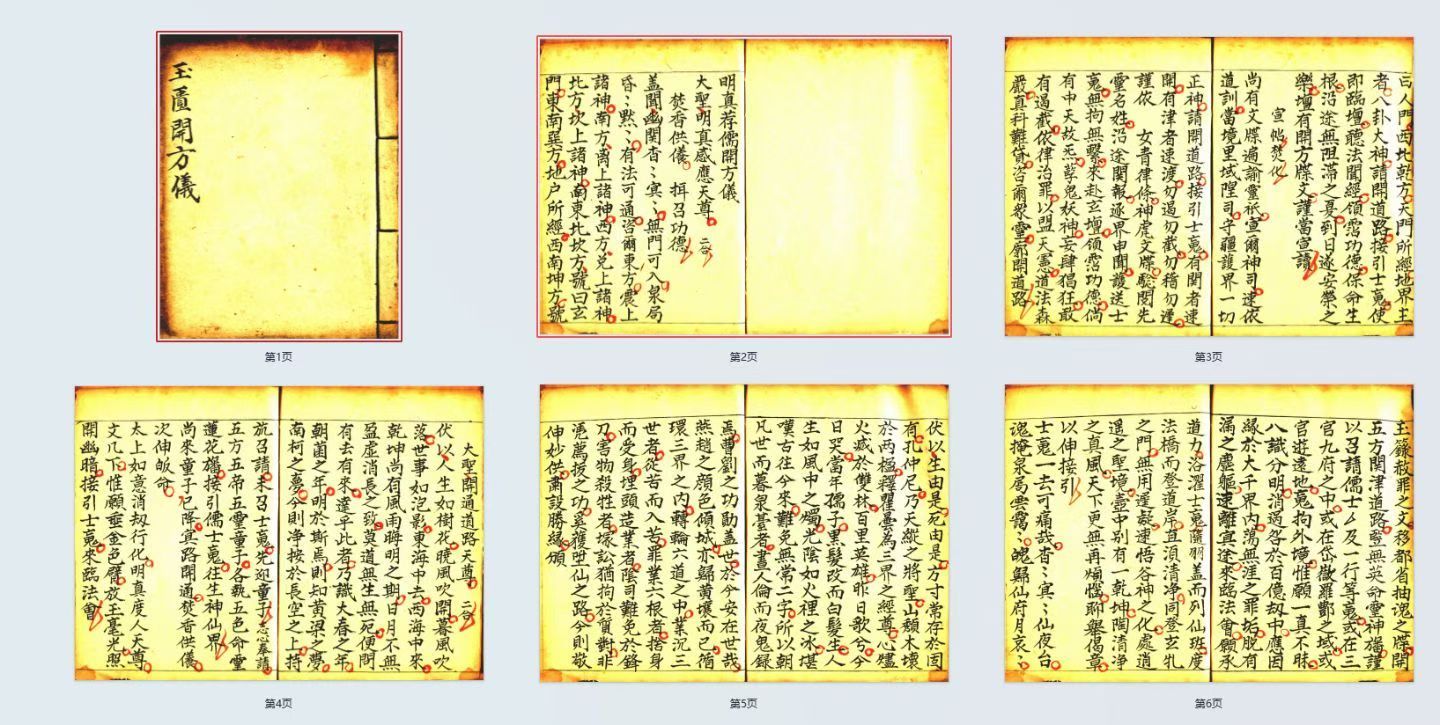 玉匱開方儀
第1页
明真荐儒開方儀
大聖明真感應天尊 二合
焚香供儀 拜召功德
蓋聞幽関杳〻冥〻無門可入泉局
昏〻黙〻有法可通咨爾東方震上
諸神南方离上諸神西方兌上諸神
北方坎上諸神東北艮方號曰玄
門東南巽方地户所經西南坤方號
第2页
曰人門西北乾方天門所經地界主
者八卦大神請開道路接引士䰟使
即臨壇聽法聞經領霑功德保命生
根沿途無阻滯之憂到日遂安榮之
樂壇有開方牒文謹當宣讀
宣帖焚化
尚有文牒遍諭靈祇宣爾神司速依
道訓當境里域隍司守疆護界一切
正神請開道路接引士䰟有関者速
開有津者速渡勿遏勿截勿稽勿遲
謹依 女青律條神虎文牒驗関先
靈名姓沿途関報逐界申聞護送士
䰟無拘無繫來赴玄壇領霑功德倘
有中天故炁孽鬼妖神妄肆猖狂敢
有遏截依律治罪以盟天憲道法森
嚴真科難貸咨爾衆靈郭開道路
第3页
大聖開通道路天尊 二合
伏以人生如樹花曉風吹開暮風吹
落世事如泡影東海中去西海中來
乾坤尚有風雨晦明之期日月不無
盈虛消長之致莫道無生無死便開
有去有來達乎此者乃識大春之年
朝菌之年明於斯焉則知黄梁之夢
南柯之夢今則净按於長空之上持
旂召請未召士䰟先迎童子志心奉請
五方五帝五靈童子各執五色命靈
蓮花旛接引儒士䰟往生神仙界
尚來童子已降冥路開通焚香供儀
次伸皈命
太上如意消刼行化明真度人天尊
文几下惟願垂金色臂放玉毫光照
開幽暗接引士䰟來臨法會
第4页
伏以生由是死由是方寸常存於固
有孔仲尼乃天縱之將聖山頹木壞
於兩楹釋瞿曇為三界之經尊心燼
火滅於雙林百里英雄昨日歌兮今
日哭當年孺子黑髮改而白髮生人
生如風中之燭光陰如火裡之冰堪
嘆古往今來難免無常二字所以朝
凡世而暮泉臺者晝人倫而夜鬼録
焉曹劉之功勛蓋世於今安在世哉
燕趙之顔色傾城亦歸黄壤而已循
環三界之内轉輪六道之中業沉三
世者從苦而入苦罪業六根者捨身
而受身埋頭造業者陰司難免於鋒
刀害物殺牲者塚訟猶拘於質對非
凴萬拔之功奚獲陞仙之路今則敬
伸妙供肅設勝緣頒
第5页
玉籙赦罪之文移都省抽䰟之牒開
五方関津道路竪無英命靈神旛謹
以召請儒士厶厶及一行等䰟或在三
官九府之中或在岱嶽酆都之域或
官遊遠地䰟拘外境惟願一真不昧
八識分明消過咎於百億刼中應因
緣於大千界内蕩無涯之罪垢脫有
漏之塵軀速離冥途來臨法會領承
道力沐浴濯士䰟隨羽蓋而列仙班度
法橋而登道岸直湏清净同登玄牝
之門無用遲疑速悟谷神之化處逍
遥之聖境壺中別有一乾坤闡清浄
之真風天下更無再煩惱聊舉偈章
以伸接引
士䰟一去可痛哉杳〻冥〻仙夜台
䰟掩泉局雲靄〻魄歸仙府月哀〻
第6页